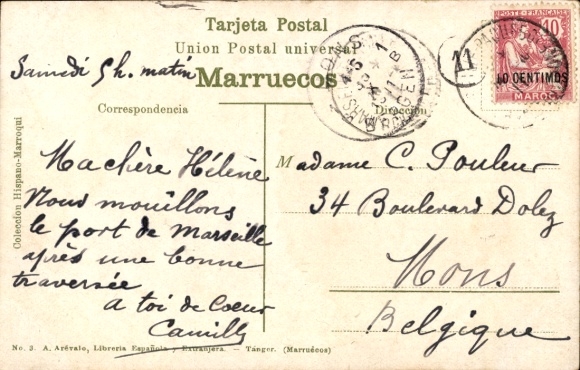 Tarjeta Postal
Union Postal universal
Marruecos
Samedi 5h. matin
Correspondencia
Dirección
11
POSTE FRANÇAISE
10
10 CENTIMOS
MAROC
Colección Hispano-Marroqui
Ma chère Hélène
Nous mouillons
le port de Marseille
après une bonne
traversée
a toi de Coeur
Camille
Madame C. Pouleur
34 Boulevard Dolez
Mons
Belgique
No. 3. A. Arévalo, Libreria Española y Extranjera. — Tánger. (Marruécos)